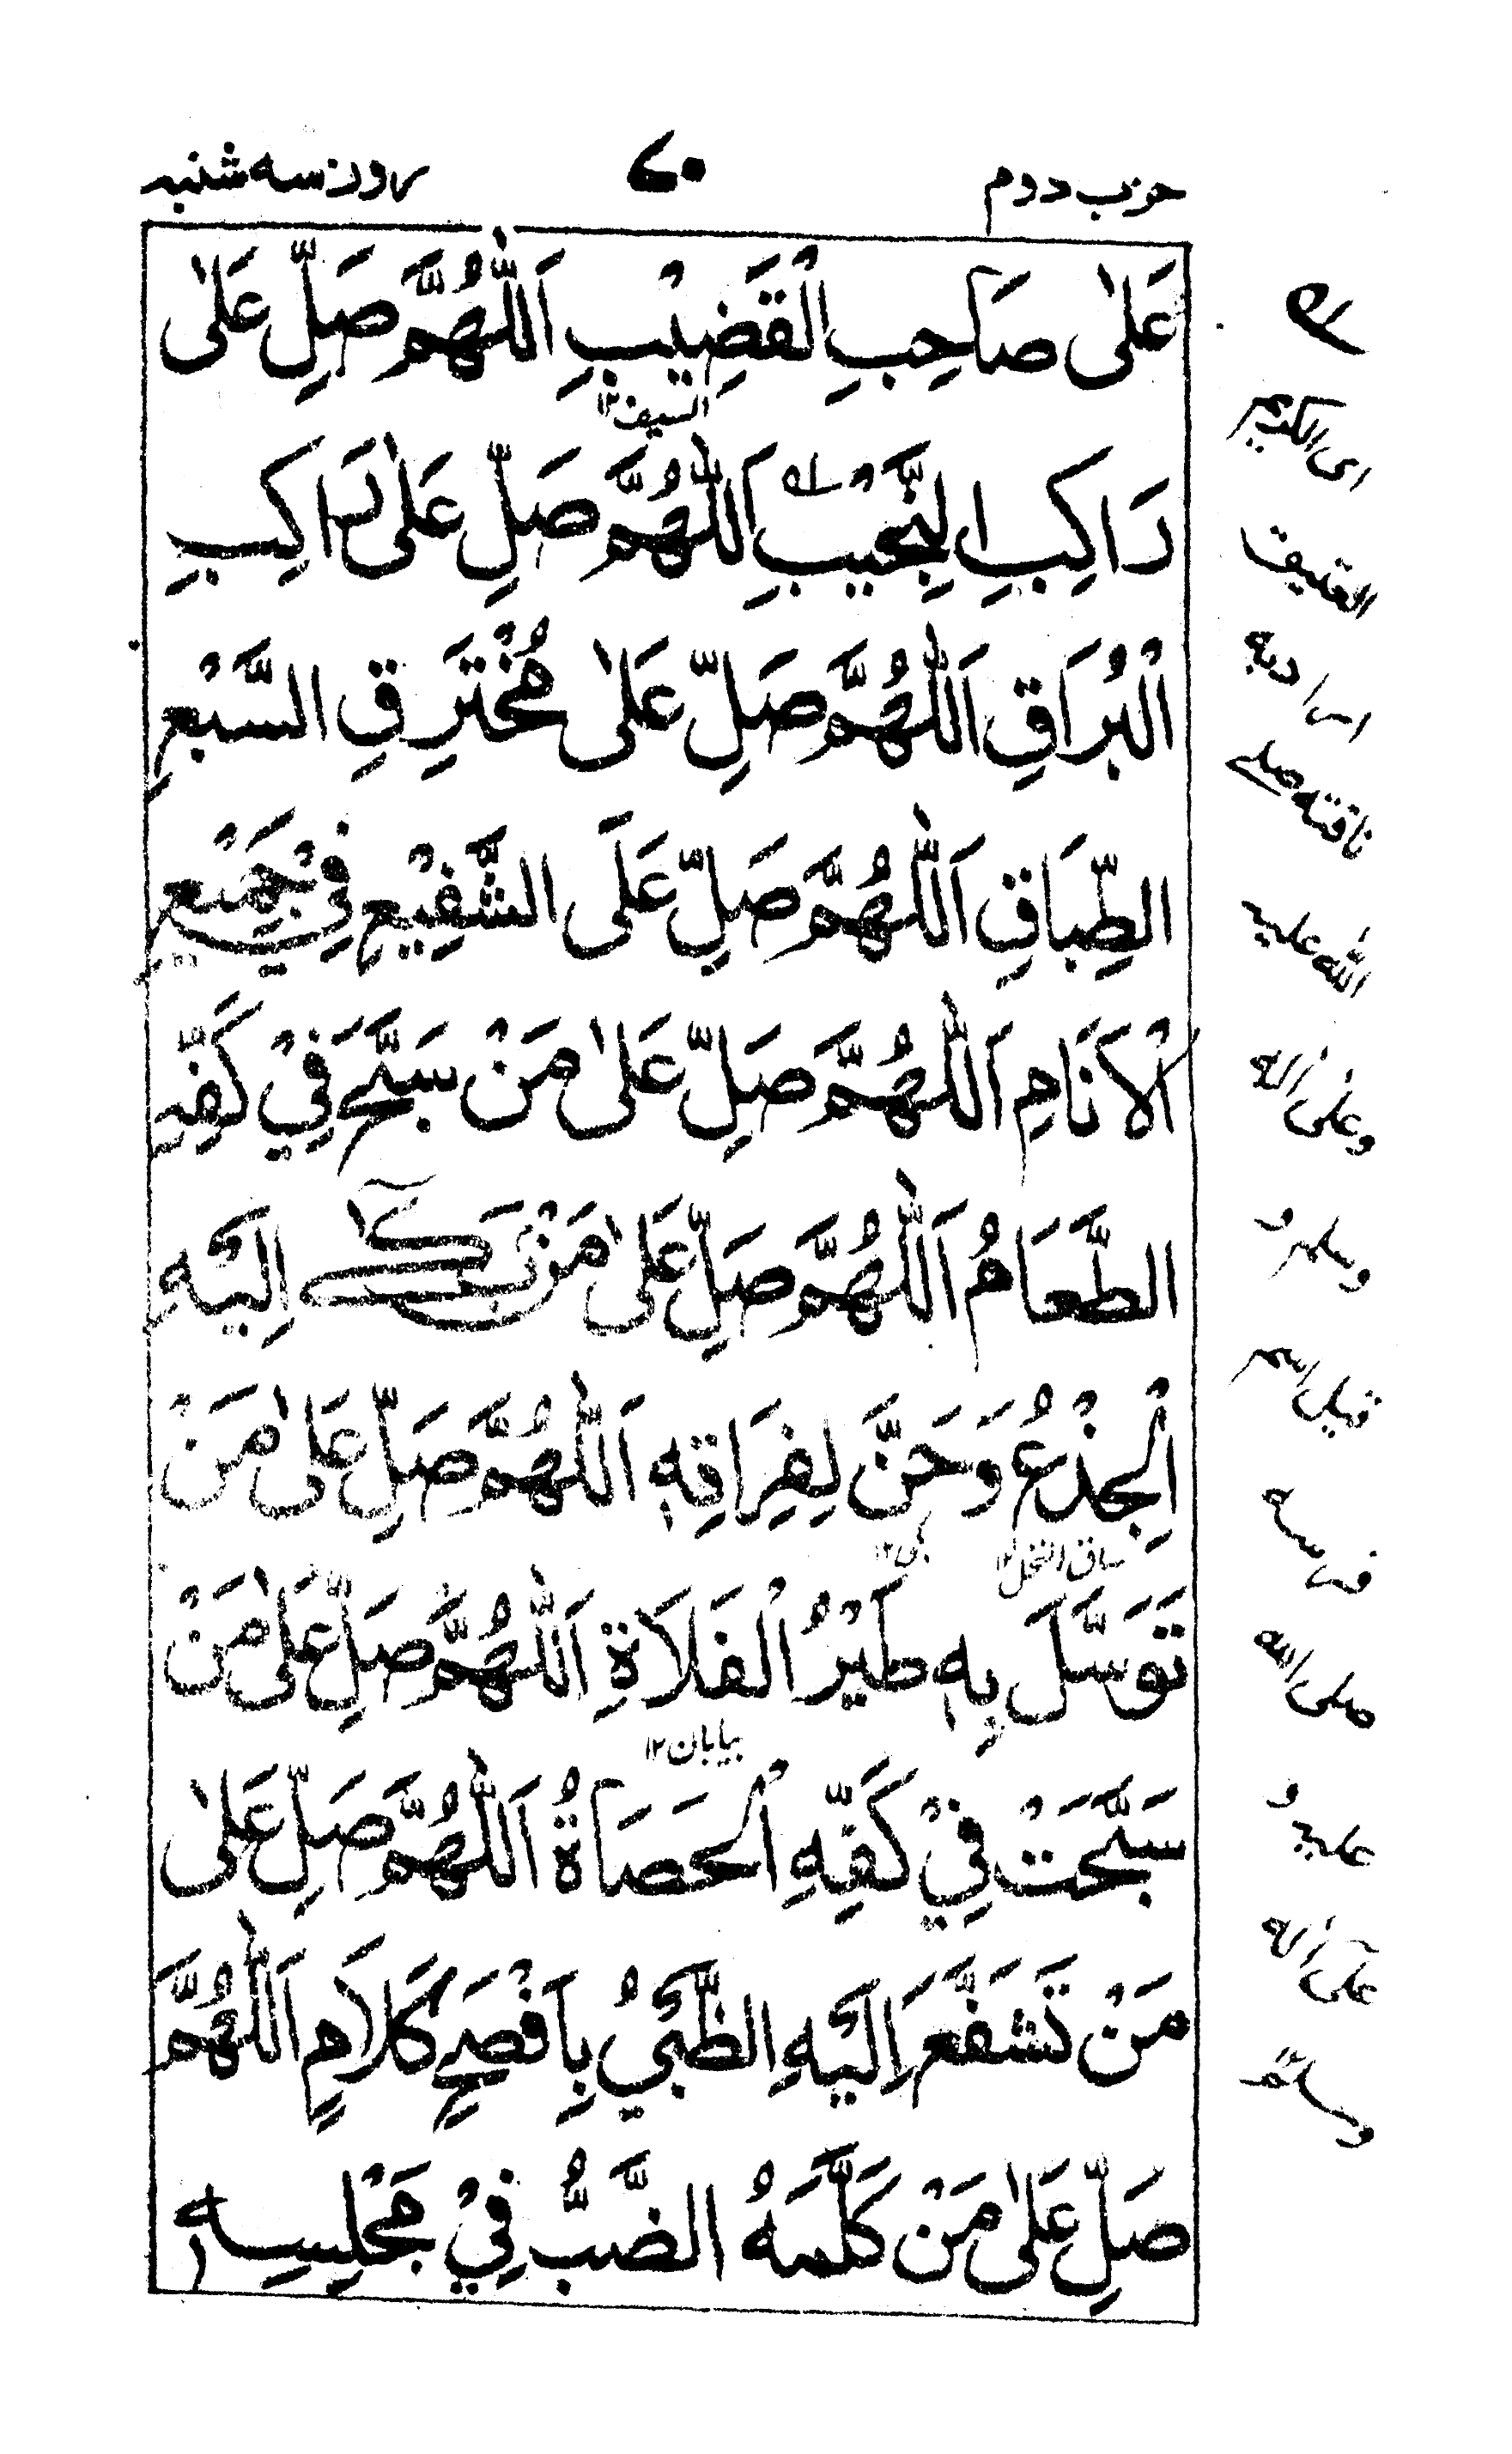 حزب دوم ۷۰ روز سه شنبه
عَلٰى صَاحِبِ الْقَضِيْبِ اَللّٰهُمَّ صَلِّ عَلٰى
السيف۱۲
رَاكِبِ النَّجِيْبِ اَللّٰهُمَّ صَلِّ عَلٰى رَاكِبِ
الْبُرَاقِ اَللّٰهُمَّ صَلِّ عَلٰى مُخْتَرِقِ السَّبْعِ
الطِّبَاقِ اَللّٰهُمَّ صَلِّ عَلَى الشَّفِيْعِ فِيْ جَمِيْعِ
الْاَنَامِ اَللّٰهُمَّ صَلِّ عَلٰى مَنْ سَبَّحَ فِيْ كَفِّهِ
الطَّعَامُ اَللّٰهُمَّ صَلِّ عَلٰى مَنْ بَكٰى اِلَيْهِ
الْجِذْعُ وَحَنَّ لِفِرَاقِهٖ اَللّٰهُمَّ صَلِّ عَلٰى مَنْ
ساق النخل۱۲
تَوَسَّلَ بِهٖ طَيْرُ الْفَلَاةِ اَللّٰهُمَّ صَلِّ عَلٰى مَنْ
بیابان۱۲
سَبَّحَتْ فِيْ كَفِّهِ الْحَصَاةُ اَللّٰهُمَّ صَلِّ عَلٰى
مَنْ تَشَفَّعَ اِلَيْهِ الظَّبْيُ بِاَفْصَحِ كَلَامٍ اَللّٰهُمَّ
صَلِّ عَلٰى مَنْ كَلَّمَهُ الضَّبُّ فِيْ مَجْلِسِهٖ
اى الكريم
العتيق
ناقته صلى
الله عليه
وعلى اله
وسلم و
قيل اسم
فرسه
صلى الله
عليه و
على اله
وسلم